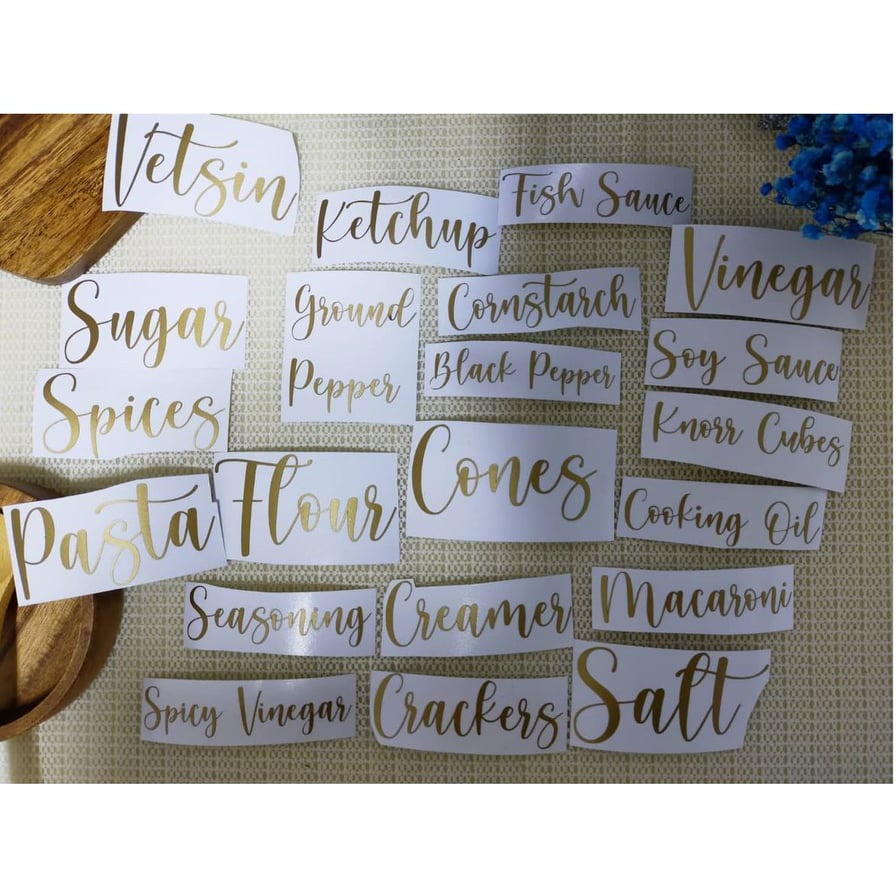 Vetsin
Ketchup
Fish Sauce
Vinegar
Sugar
Ground
Pepper
Cornstarch
Black Pepper
Soy Sauce
Spices
Knorr Cubes
Pasta
Flour
Cones
Cooking Oil
Seasoning
Creamer
Macaroni
Spicy Vinegar
Crackers
Salt